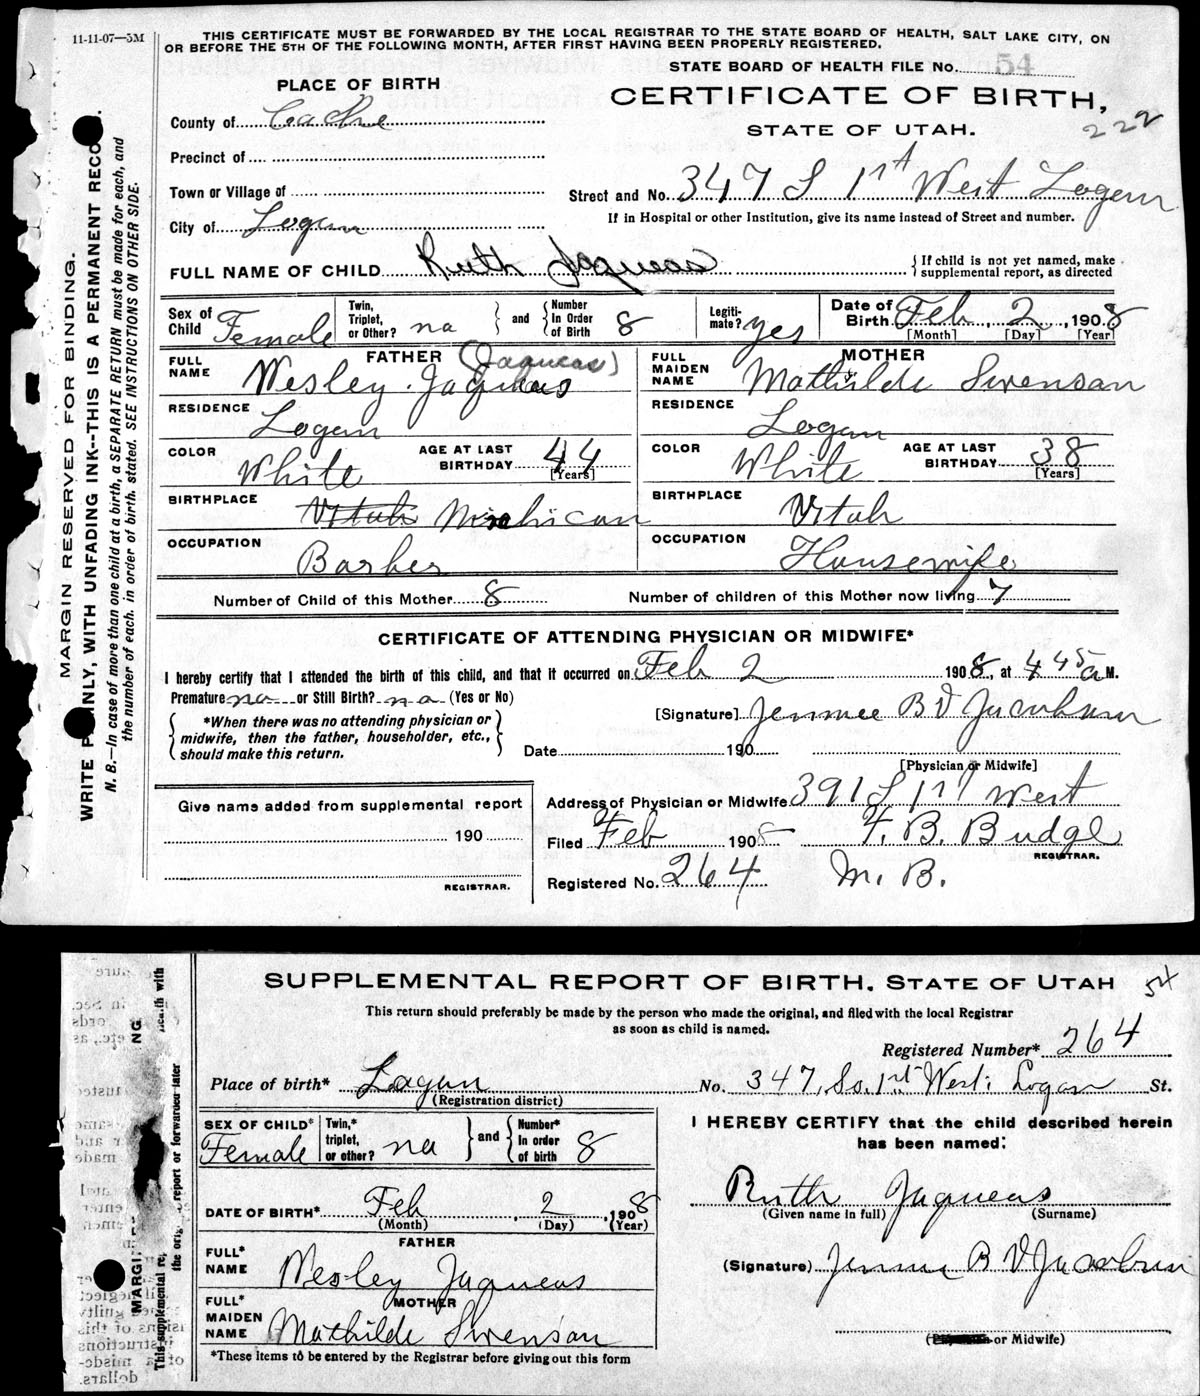 11-11-07—5M
THIS CERTIFICATE MUST BE FORWARDED BY THE LOCAL REGISTRAR TO THE STATE BOARD OF HEALTH, SALT LAKE CITY, ON
OR BEFORE THE 5TH OF THE FOLLOWING MONTH, AFTER FIRST HAVING BEEN PROPERLY REGISTERED.
STATE BOARD OF HEALTH FILE No. 54
PLACE OF BIRTH
CERTIFICATE OF BIRTH,
STATE OF UTAH.
222
County of Cache
Precinct of
Town or Village of
Street and No. 347 S 1st West Logan
If in Hospital or other Institution, give its name instead of Street and number.
City of Logan
FULL NAME OF CHILD Ruth Jaqueas
{If child is not yet named, make
supplemental report, as directed
Sex of Child Female
Twin, Triplet, or Other? na } and { Number In Order of Birth 8
Legiti- mate? yes
Date of Birth. Feb, 2, 1908
[Month] [Day] [Year]
FATHER
FULL NAME Wesley Jaqueas (Jaqueas)
MOTHER
FULL MAIDEN NAME Mathilde Swensan
RESIDENCE Logan
RESIDENCE Logan
COLOR White
AGE AT LAST BIRTHDAY 44
[Years]
COLOR White
AGE AT LAST BIRTHDAY 38
[Years]
BIRTHPLACE Utah Michican
BIRTHPLACE Utah
OCCUPATION Barber
OCCUPATION Housewife
Number of Child of this Mother 8
Number of children of this Mother now living 7
CERTIFICATE OF ATTENDING PHYSICIAN OR MIDWIFE*
I hereby certify that I attended the birth of this child, and that it occurred on Feb 2 1908, at 4 45 a M.
Premature na or Still Birth? na (Yes or No)
{*When there was no attending physician or
midwife, then the father, householder, etc.,
should make this return.}
[Signature] B V
Date 190
[Physician or Midwife]
Give name added from supplemental report
190
REGISTRAR.
Address of Physician or Midwife 391 S 1st West
Filed Feb 1908 F. B. Budge
REGISTRAR.
Registered No. 264 M. B.
MARGIN RESERVED FOR BINDING.
WRITE PLAINLY, WITH UNFADING INK--THIS IS A PERMANENT RECO
N. B.—In case of more than one child at a birth, a SEPARATE RETURN must be made for each, and
the number of each, in order of birth, stated. SEE INSTRUCTIONS ON OTHER SIDE.
SUPPLEMENTAL REPORT OF BIRTH, STATE OF UTAH
54
This return should preferably be made by the person who made the original, and filed with the local Registrar
as soon as child is named.
Registered Number* 264
Place of birth* Logan No. 347, So. 1st West: Logan St.
(Registration district)
SEX OF CHILD* Female
Twin,* triplet, or other? na } and { Number* In order of birth 8
I HEREBY CERTIFY that the child described herein
has been named:
DATE OF BIRTH* Feb, 2, 1908
(Month) (Day) (Year)
Ruth Jaqueas
(Given name in full) (Surname)
FATHER
FULL* NAME Wesley Jaqueas
(Signature) B V
MOTHER
FULL* MAIDEN NAME Mathilde Swensan
or Midwife)
*These items to be entered by the Registrar before giving out this form